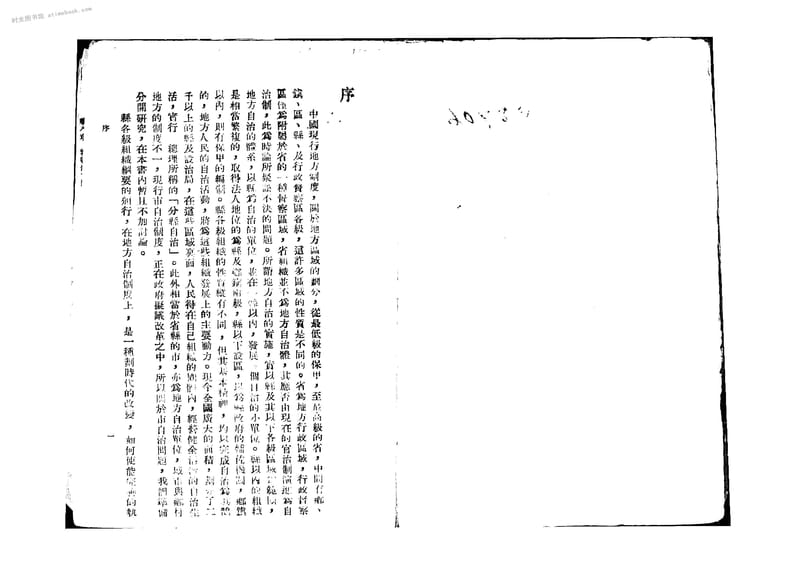 时光图书馆 atimebook.com
序
中國現行地方制度，關於地方區域的劃分，從最低級的保甲，至最高級的省，中間有鄉、
鎮、區、縣、及行政督察區各級，這許多區域的性質是不同的。省爲地方行政區域，行政督察
區僅爲附屬於省的一種督察區域，省組織並不爲地方自治體，其應否由現在的官治制演進爲自
治制，此爲時論所疑訟不決的問題。所謂地方自治的實施，實以縣及其以下各級區域
地方自治的體系，以縣爲自治的單位，並在一縣以內，發展
自治的小單位。縣以內的組織
是相當繁複的，取得法人地位的爲縣及鄉鎮兩級，縣以下設區，以爲縣政府的輔佐機關，鄉鎮
以內，則有保甲的編制。縣各級組織的性質雖有不同，但其基本精神，均以完成自治爲其體
的，地方人民的自治活動，將爲這些組織發展上的主要動力。現今全國廣大的面積，劃分了二
千以上的縣及設治局，在這些區域裏面，人民得在自己組織的團體內，經營健全活潑的自治生
活，實行　總理所稱的「分縣自治」。此外相當於省縣的市，亦爲地方自治單位，城市與鄉村
地方的制度不一，現行市自治制度，正在政府擬議改革之中，所以關於市自治問題，我們準備
分開研究，在本書內暫且不加討論。
縣各級組織綱要的施行，在地方自治制度上，是一種劃時代的改變，如何使能完善的執
序
一